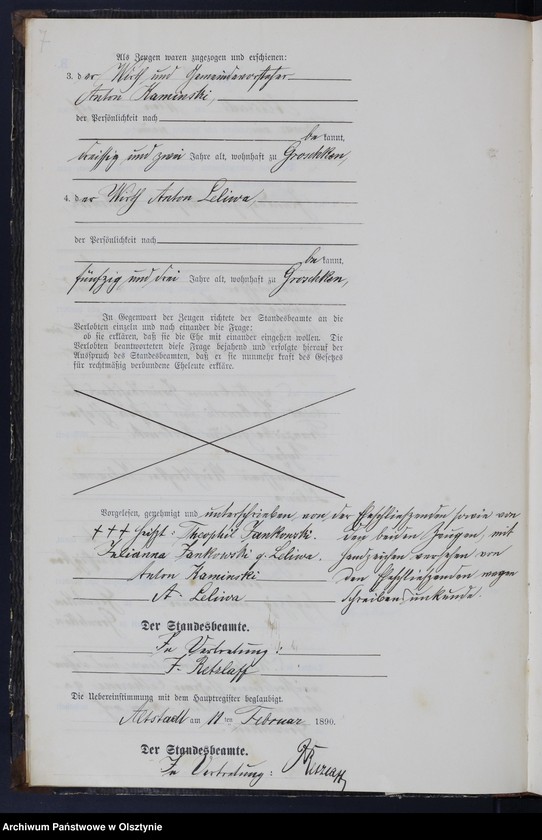 7
Als Zeugen waren zugezogen und erschienen:
3. der Wirth und Gemeindevorsteher
Anton Kaminski,
der Persönlichkeit nach
be kannt,
dreißig und zwei Jahre alt, wohnhaft zu Groschken,
4. der Wirth Anton Leliwa,
der Persönlichkeit nach
be kannt,
fünfzig und drei Jahre alt, wohnhaft zu Groschken,
In Gegenwart der Zeugen richtete der Standesbeamte an die
Verlobten einzeln und nach einander die Frage:
ob sie erklären, daß sie die Ehe mit einander eingehen wollen. Die
Verlobten beantworteten diese Frage bejahend und erfolgte hierauf der
Ausspruch des Standesbeamten, daß er sie nunmehr kraft des Gesetzes
für rechtmäßig verbundene Eheleute erkläre.
Vorgelesen, genehmigt und unterschrieben, von der Eheschließenden sowie von
+++ heißt: Theophil Jankowski. den beiden Zeugen, mit
Julianna Jankowski g. Leliwa. Handzeichen versehen von
Anton Kaminski den Eheschließenden wegen
A. Leliwa Schreibensunkunde.
Der Standesbeamte.
In Vertretung:
F. Retzlaff
Die Uebereinstimmung mit dem Hauptregister beglaubigt.
Altstadt am 11 ten Februar 1890.
Der Standesbeamte.
In Vertretung:
Archiwum Państwowe w Olsztynie